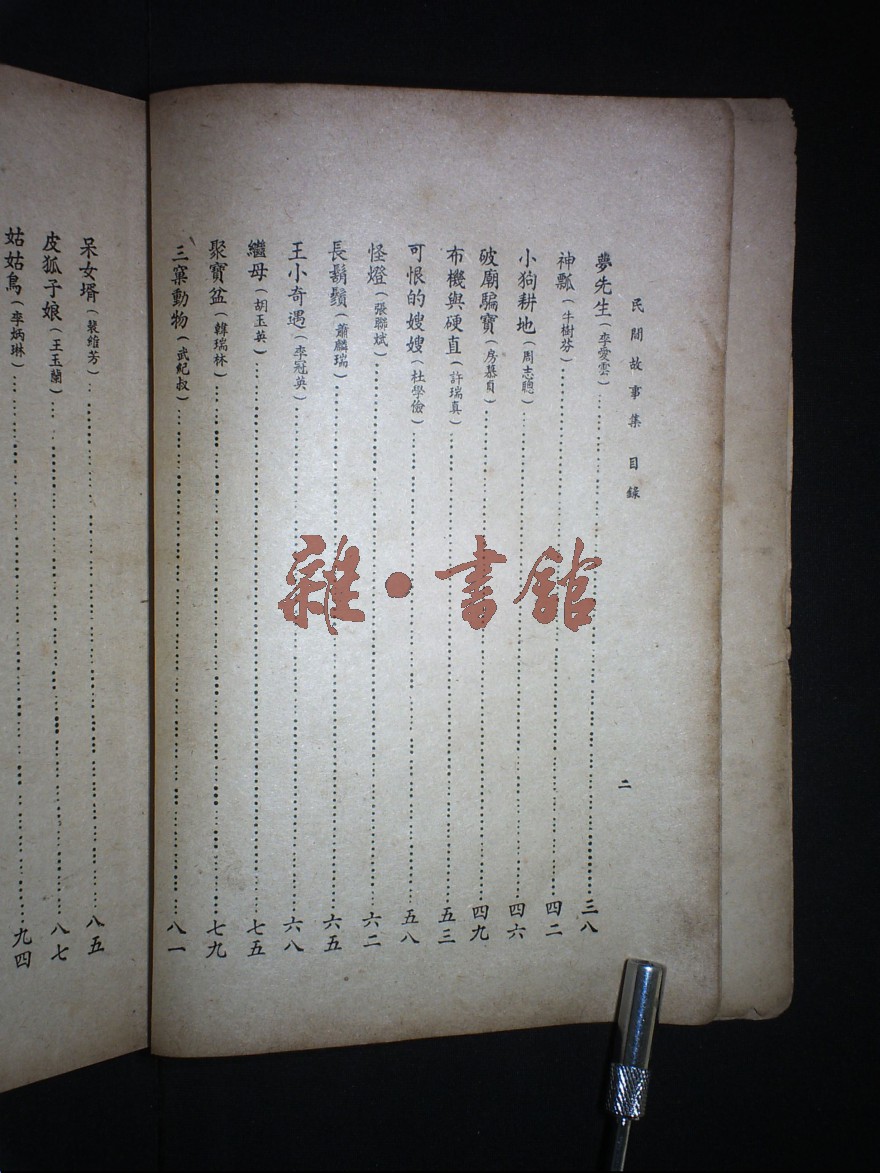 民間故事集 目錄
二
夢先生(李愛雲)……三八
神瓢(牛樹芬)……四二
小狗耕地(周志聰)……四六
破廟騙寶(房慕貞)……四九
布機與硬直(許瑞真)……五三
可恨的嫂嫂(杜學儉)……五八
怪燈(張聯斌)……六二
長鬍鬚(蕭麟瑞)……六五
王小奇遇(李冠英)……六八
繼母(胡玉英)……七五
聚寶盆(韓瑞林)……七九
三窠動物(武紀叔)……八一
呆女壻(裴維芳)……八五
皮狐子娘(王玉蘭)……八七
姑姑鳥(李炳琳)……九四
雜·書館